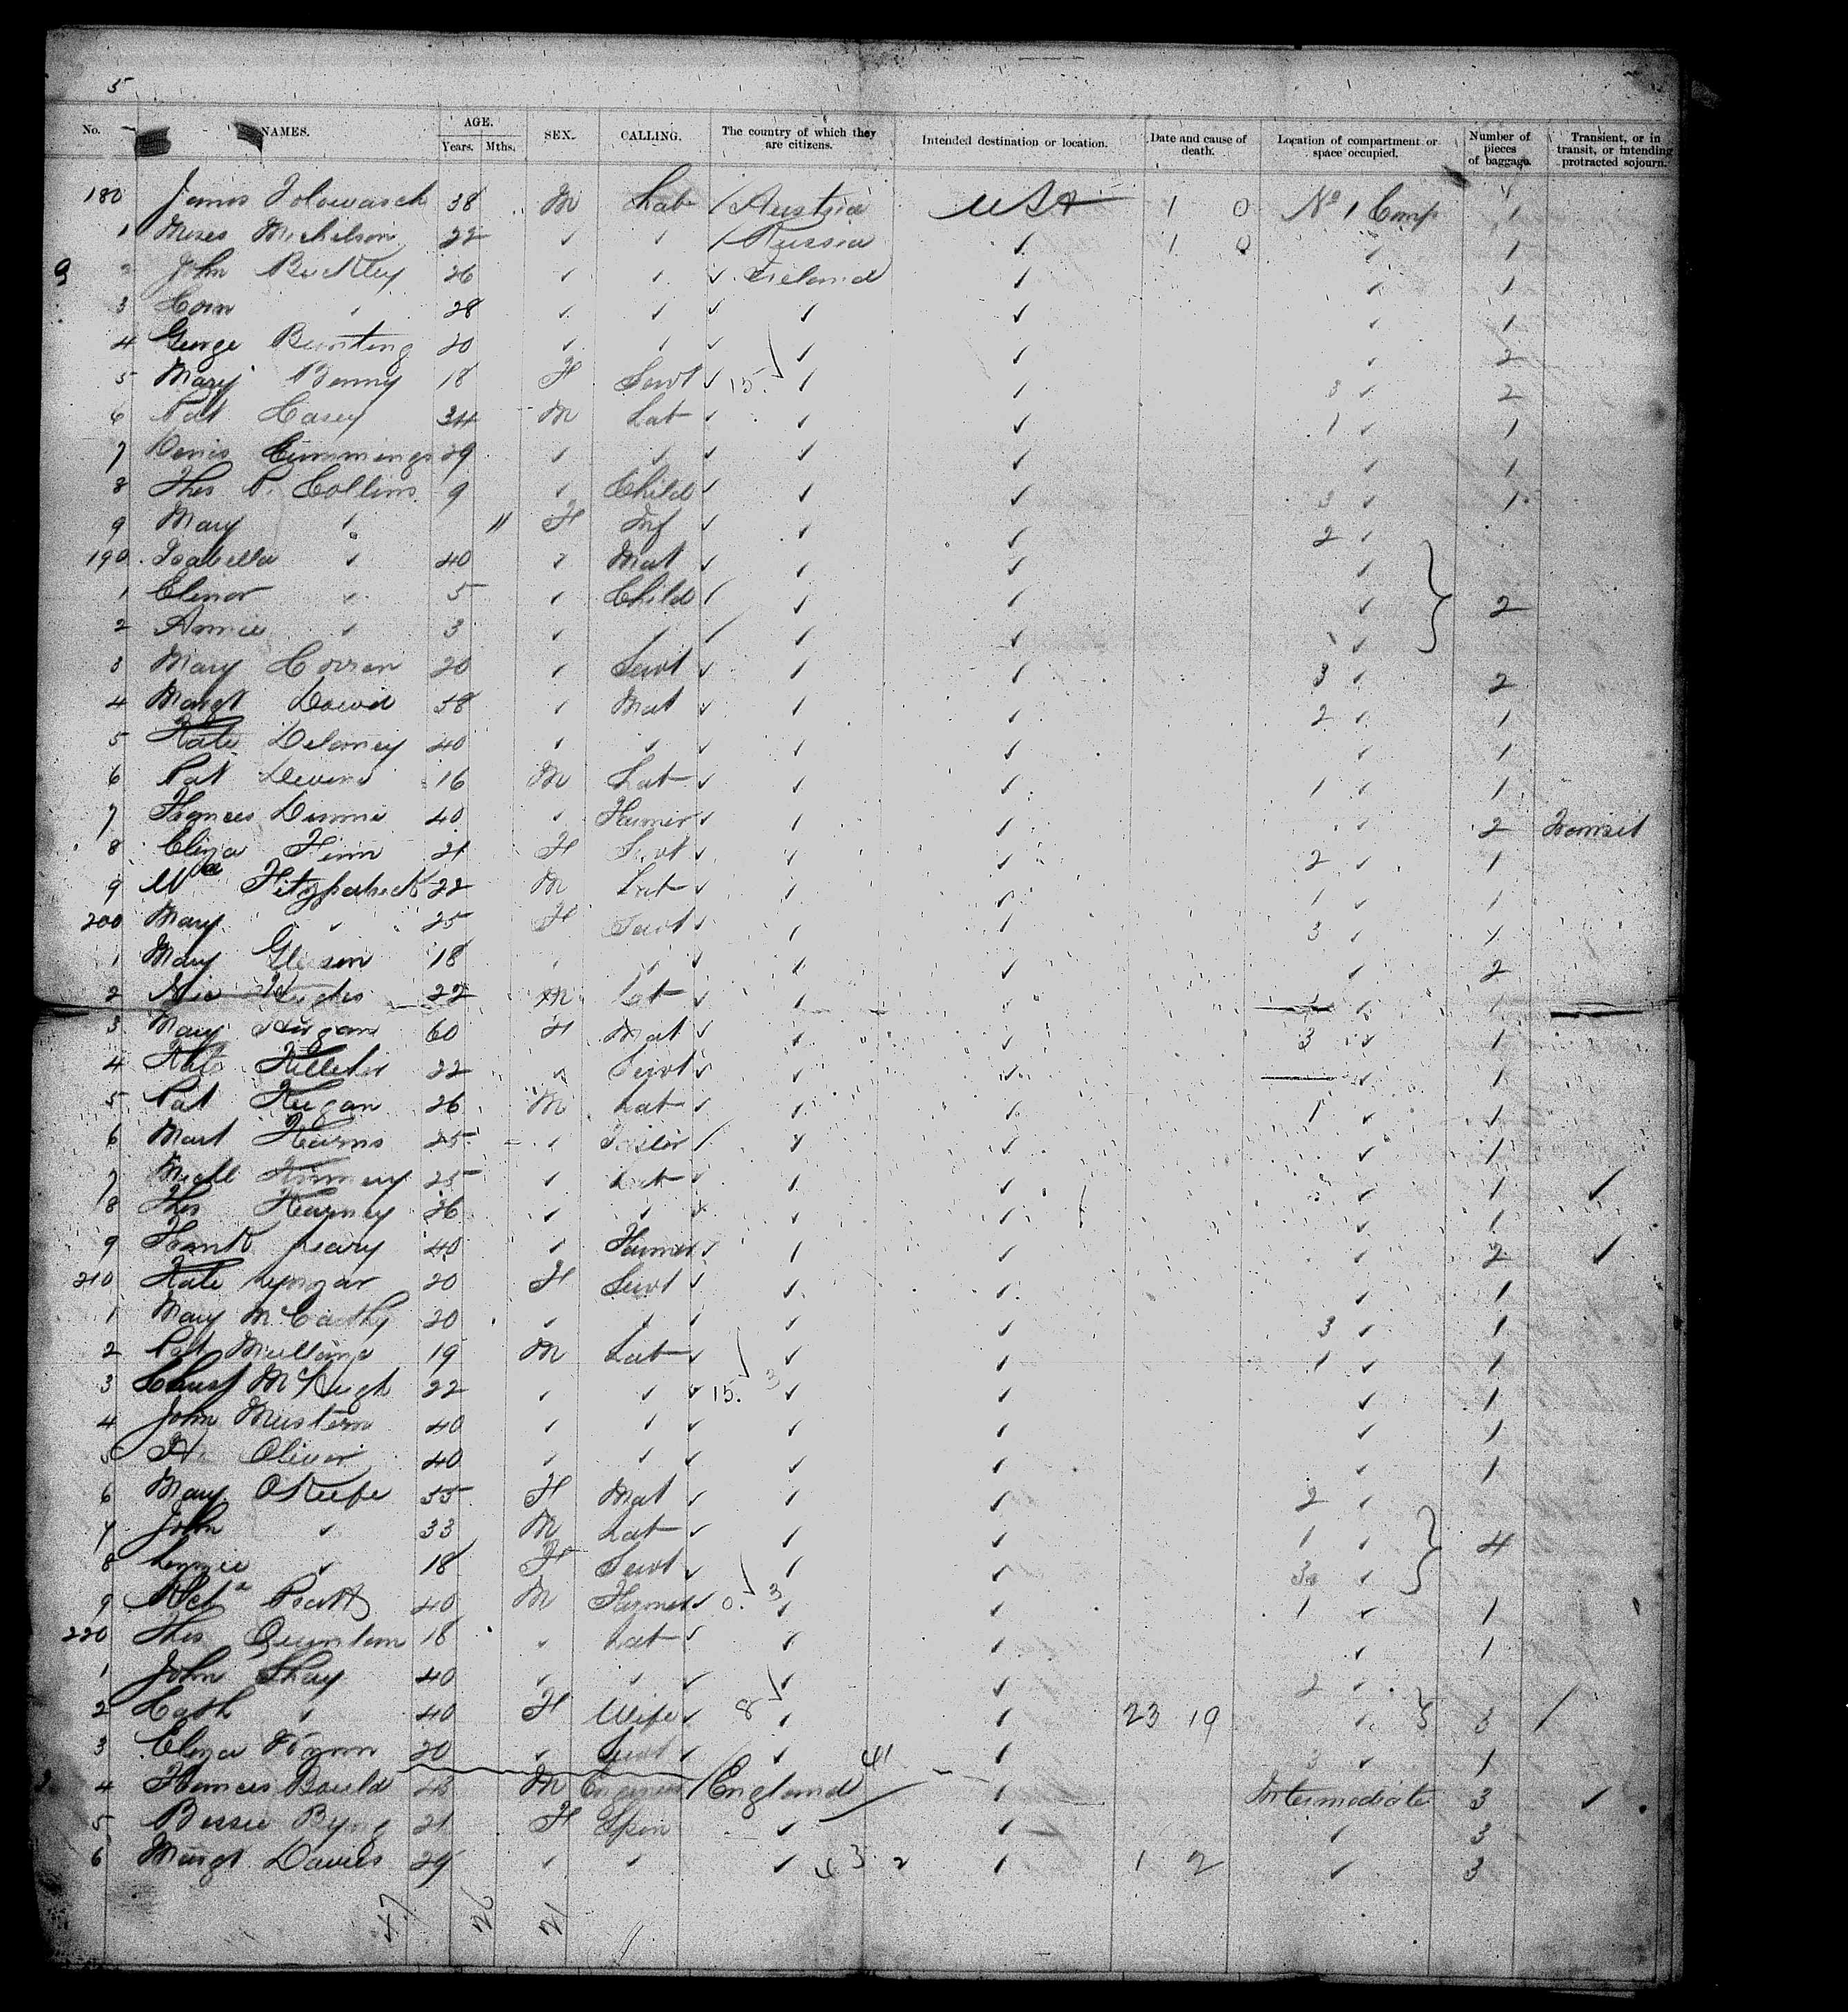 5
No. NAMES. AGE. Years. Mths. SEX. CALLING. The country of which they are citizens. Intended destination or location. Date and cause of death. Location of compartment or space occupied. Number of pieces of baggage. Transient, or in transit, or intending protracted sojourn.
180 38 M Lab / Austria USA 1 0 No 1 Comp 1
1 Moses Michelson 22 ✓ ✓ / Russia ✓ 1 0 ✓ 1
2 John Buckley 26 ✓ ✓ ✓ Ireland ✓ ✓ 1
3 Corn ✓ 28 ✓ ✓ ✓ ✓ ✓ ✓ 1
4 George Bunting 20 ✓ ✓ ✓ ✓ ✓ ✓ 2
5 Mary Benny 18 F Servt ✓ 15. ✓ ✓ 3 ✓ 2
6 Pat Casey 34 M Lab ✓ ✓ ✓ 1 ✓ 1
7 Denis Cummings 29 ✓ ✓ ✓ ✓ ✓ ✓ 1
8 Thos P. Collins 9 ✓ Child ✓ ✓ ✓ 3 ✓ 1
9 Mary ✓ 11 F Inf ✓ ✓ ✓ 2 ✓
190 Isabella ✓ 40 ✓ Mat ✓ ✓ ✓ ✓
1 Elinor ✓ 5 ✓ Child / ✓ ✓ ✓ 2
2 Annie ✓ 3 ✓ ✓ / ✓ ✓ ✓
3 Mary Corran 20 ✓ Servt ✓ ✓ ✓ 3 ✓ 2
4 Margt 58 ✓ Mat ✓ ✓ ✓ 2 ✓ 1
5 Kate Delaney 40 ✓ ✓ ✓ ✓ ✓ ✓ 1
6 Pat Devine 16 M Lab ✓ ✓ ✓ 1 ✓ 1
7 Frances 40 ✓ Farmer ✓ ✓ ✓ ✓ 2 Transit
8 Eliza Finn 21 F Servt ✓ ✓ ✓ 2 ✓ 1
9 Wm Fitzpatrick 22 M Lab ✓ ✓ ✓ 1 ✓ 1
200 Mary ✓ 25 F Servt ✓ ✓ ✓ 3 ✓ 1
1 Mary Gleeson 18 ✓ ✓ ✓ ✓ ✓ ✓ 2
2 22 M Lab ✓ ✓ ✓ 1 ✓ 1
3 Mary Hogan 60 F Mat ✓ ✓ ✓ 3 ✓ 1
4 Kate 22 ✓ Servt ✓ ✓ ✓ ✓ 1
5 Pat Keegan 26 M Lab ✓ ✓ ✓ 1 ✓ 1
6 Mart Kearns 25 ✓ Tailor / ✓ ✓ ✓ 1
7 Michl 25 ✓ Lab ✓ ✓ ✓ ✓ 1 ✓
8 Thos Kearney 26 ✓ ✓ ✓ ✓ ✓ ✓ 1
9 Frank Leary 40 ✓ Farmer ✓ ✓ ✓ ✓ 2 ✓
210 Kate 20 F Servt ✓ ✓ ✓ ✓ 1
1 Mary McCarthy 20 ✓ ✓ ✓ ✓ ✓ 3 ✓ 1
2 Pat 19 M Lab ✓ ✓ ✓ 1 ✓ 1
3 McHugh 22 ✓ ✓ ✓ 15. 3 ✓ ✓ ✓ 1
4 John 40 ✓ ✓ ✓ ✓ ✓ 1
5 Oliver 40 ✓ ✓ ✓ ✓ ✓ ✓ 1
6 Mary OKeefe 55 F Mat ✓ ✓ ✓ 2 ✓
7 John ✓ 33 M Lab ✓ ✓ ✓ 1 ✓ 4
8 ✓ 18 F Servt ✓ ✓ ✓ 3 ✓
9 Pratt 40 M Farmer ✓ 0. 3 ✓ ✓ 1 ✓ 1
220 Thos 18 ✓ Lab ✓ ✓ ✓ ✓ 1
1 John Shay 40 ✓ ✓ ✓ ✓ ✓ 2 ✓
2 Cath ✓ 40 F Wife ✓ 8 ✓ ✓ 23 19 ✓ 3 /
3 Eliza Wynn 20 ✓ Servt ✓ ✓ 41 ✓ 3 ✓ 1
4 Frances 43 M Engineer / England ✓ Intermediate 3 ✓
5 Bessie 21 F Spin ✓ ✓ ✓ 3
6 Margt Davies 29 ✓ ✓ ✓ 3 2 ✓ 1 2 ✓ 3
47 26 21